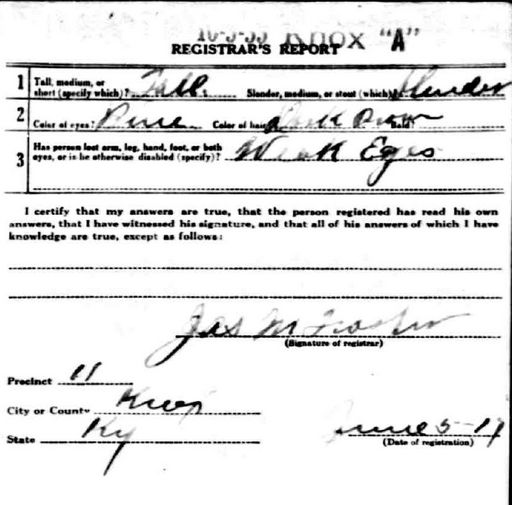 10-3-33 KNOX "A"
REGISTRAR'S REPORT
1 Tall, medium, or short (specify which)? Tall. Slender, medium, or stout (which)? Slender
2 Color of eyes? Blue Color of hair? Dark Brown Bald?
3 Has person lost arm, leg, hand, foot, or both
eyes, or is he otherwise disabled (specify)? Weak Eyes
I certify that my answers are true, that the person registered has read his own
answers, that I have witnessed his signature, and that all of his answers of which I have
knowledge are true, except as follows:
Jas M
(Signature of registrar)
Precinct 11
City or County Knox
State Ky June 5-17
(Date of registration)